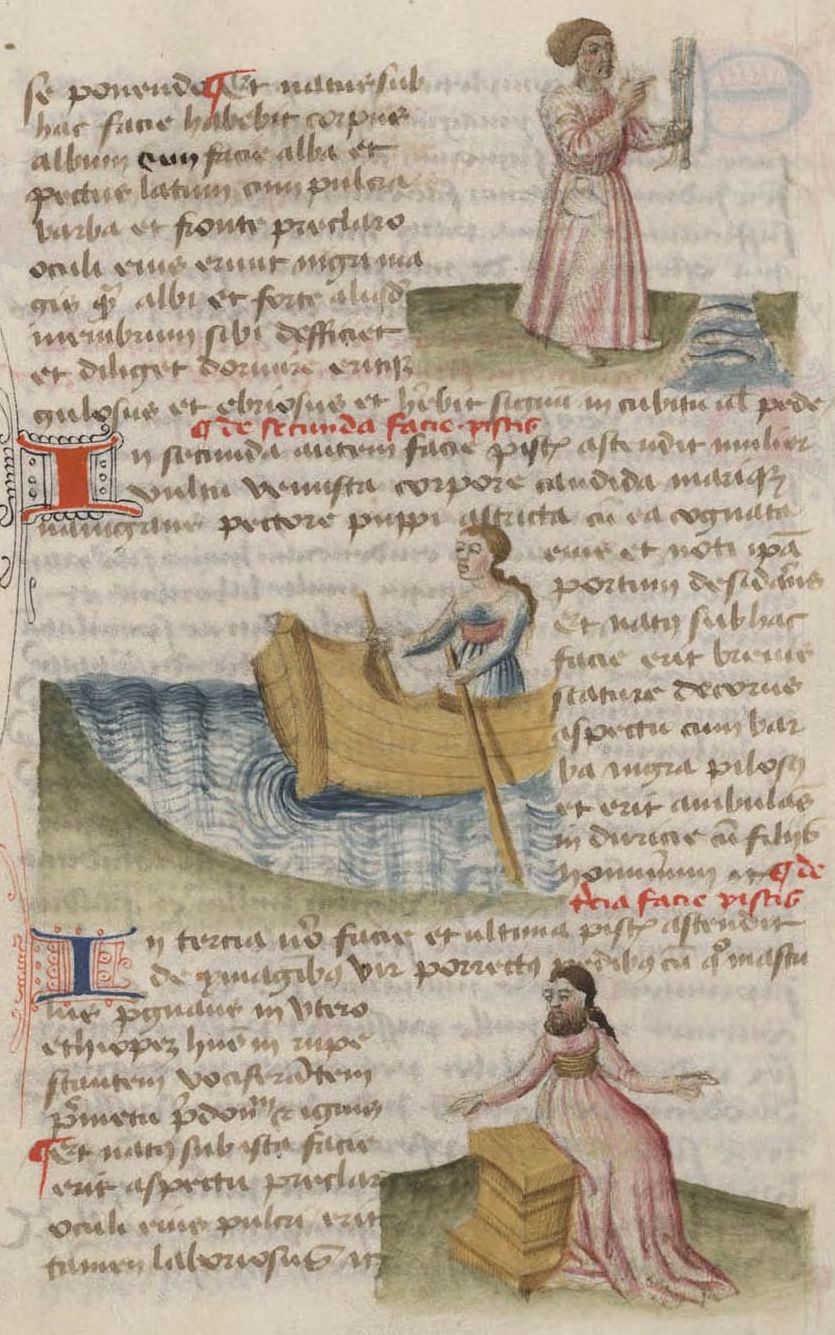 se ponendo Et natus sub
hac facie habebit corpus
album cum facie alba et
pectus latum cum pulcra
barba et fronte preclaro
oculi eius erunt nigri ma
gis albi et forte aliqd
membrum sibi defficiet
et diliget dormire eritq
gulosus et ebriosus et hebit signu in cubitu ul pede
de secunda facie piscis
In secunda autem facie pisc astendit mulier
vultu venusta corpore candida mariq
nauigans pectore puppi astricta cu ea cognata
eius et noti ipa
portum desidans
Et nat sub hac
facie erit breuis
stature decorus
aspectu cum bar
ba nigra pilos
et erit ambulas
in duricie cu filijs
hominum
de
tcia facie piscis
In tercia uo facie et ultima pisc astendit
de ymagib vir porrect pedib cu
pgnans in vtero
ethiopez in rupe
stantem vociferantem
metu pdonu ignis
Et nat sub ista facie
erit aspectu preclar
oculi eius pulcri erit
tamen laboriosus